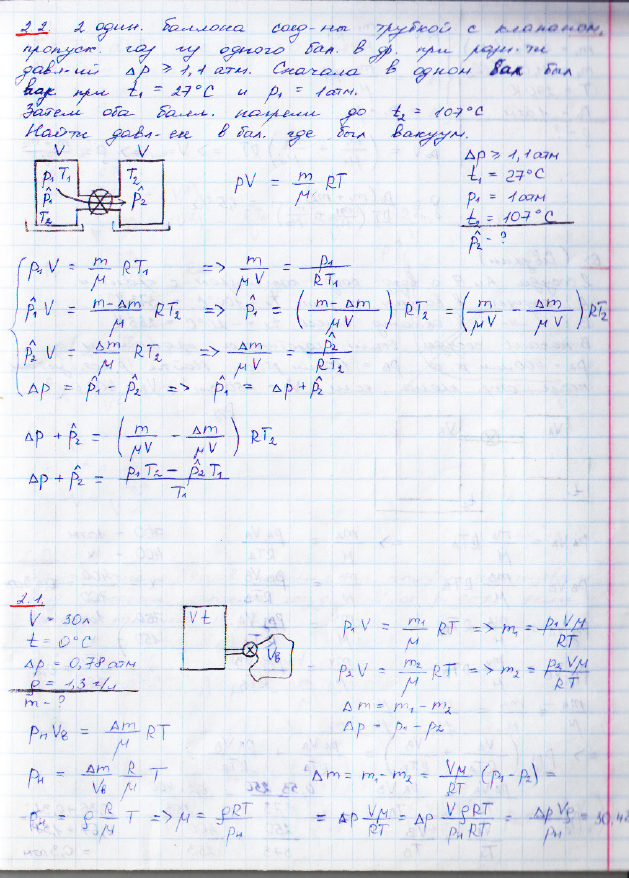 2.2 2 один. баллона соед-ны трубкой с клапаном,
пропуск. газ из одного бал. в др. при разн-ти
давл-ий Δp ≥ 1,1 атм. Сначала в одном был
вак. при t₁ = 27°C и p₁ = 1 атм.
Затем оба балл. нагрели до t₂ = 107°C
Найти давл-ек в бал. где был вакуум.
V V
p₁ T₁ T₂
p̂₁ p̂₂
T₂
pV = m/μ RT
Δp ≥ 1,1 атм
t₁ = 27°C
p₁ = 1 атм
t₂ = 107°C
p̂₂ - ?
p₁V = m/μ RT₁ => m/μV = p₁/RT₁
p̂₁V = (m-Δm)/μ RT₂ => p̂₁ = ((m-Δm)/μV) RT₂ = (m/μV - Δm/μV) RT₂
p̂₂V = Δm/μ RT₂ => Δm/μV = p̂₂/RT₂
Δp = p̂₁ - p̂₂ => p̂₁ = Δp + p̂₂
Δp + p̂₂ = (m/μV - Δm/μV) RT₂
Δp + p̂₂ = (p₁T₂ - p̂₂T₁)/T₁
2.1.
V = 30 л
t = 0°C
Δp = 0,78 атм
ρ = 1,3 г/л
m - ?
V t
Vв
p₁V = m₁/μ RT => m₁ = p₁Vμ/RT
p₂V = m₂/μ RT => m₂ = p₂Vμ/RT
Δm = m₁ - m₂
Δp = p₁ - p₂
pнVв = Δm/μ RT
pн = Δm/Vв R/μ T
Δm = m₁ - m₂ = Vμ/RT (p₁ - p₂) =
pн = ρ R/μ T => μ = ρRT/pн
= Δp Vμ/RT = Δp VρRT/pнRT = ΔpVρ/pн = 30,42